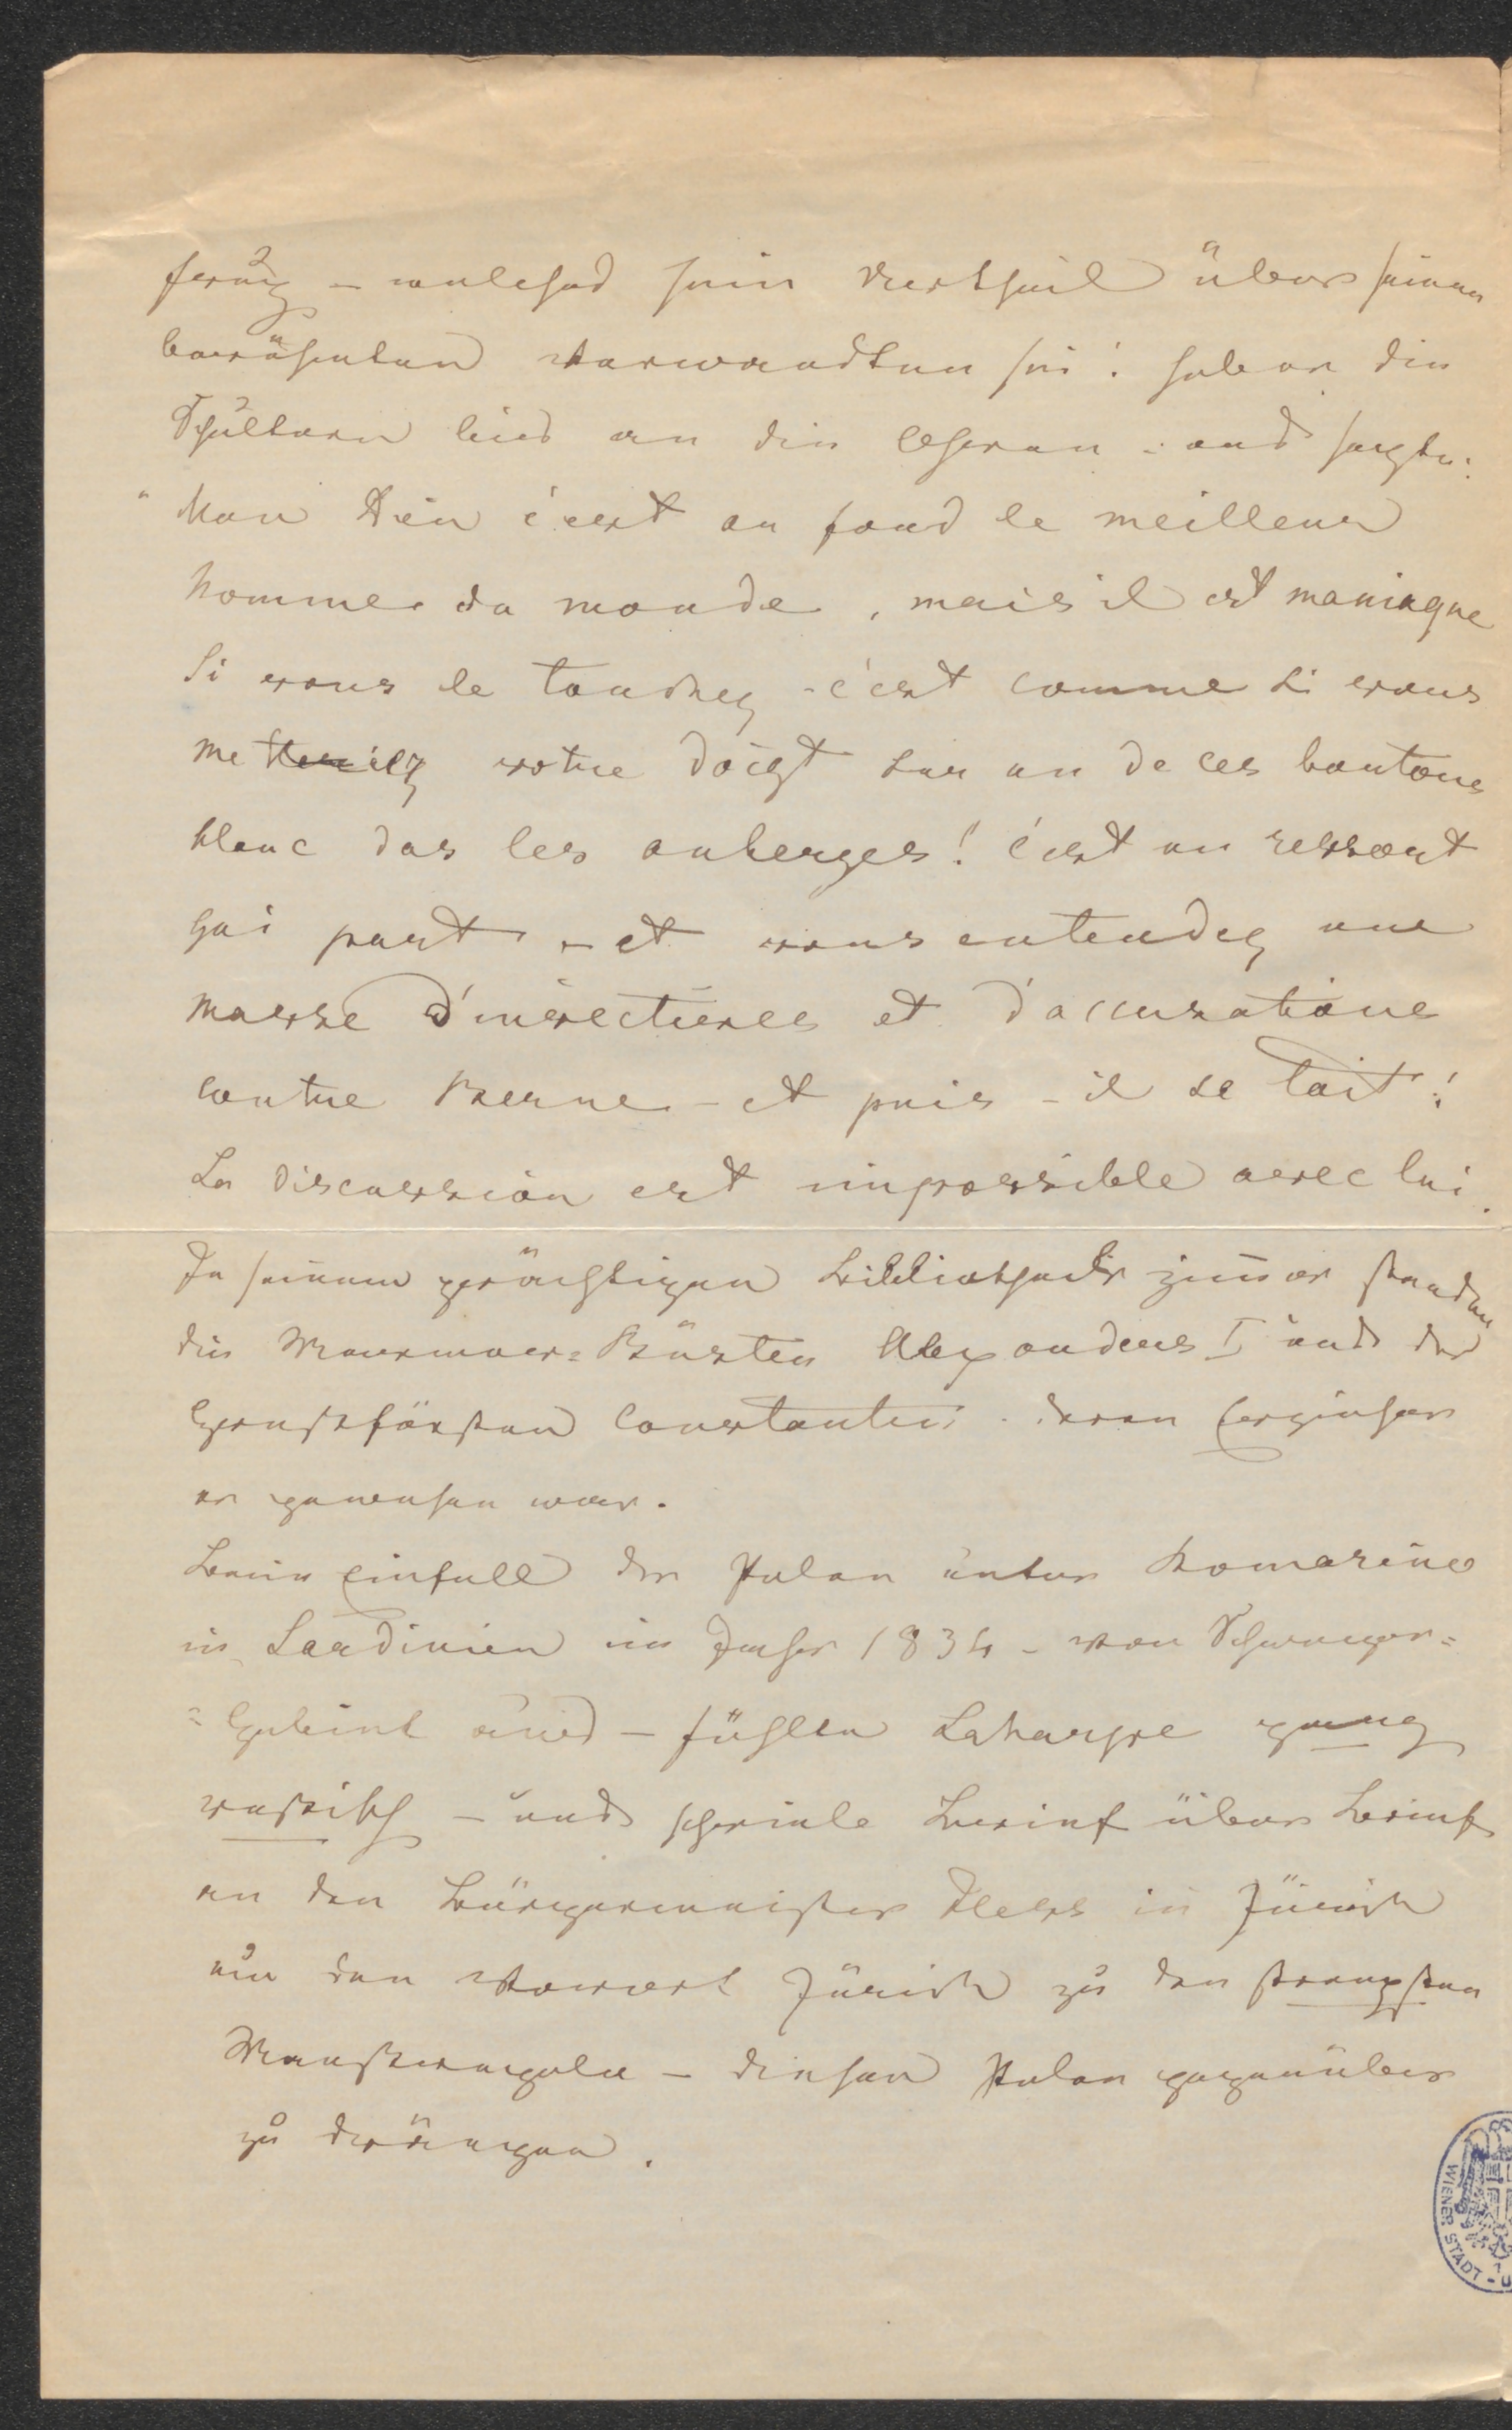 frug – welches sein Urtheil über seinen
berühmten Verwandten sei: hob er die
Schultern bis an die Ohren – und sagte:
"Mon Dieu c'est au fond le meilleur
homme du monde, mais il est maniaque
Si vous le touchez – c'est comme si vous
mettiez votre doigt sur un de ces boutons
blanc das les auberges! c'est un ressort
qui part – et vous entendez une
masse d'invectives et d'accusations
contre Berne – et puis – il se tait!
La discussion est impossible avec lui.
In seinem prächtigen Bibliothek zimer standen
die Marmor=Büsten Alexanders I und des
Großfürsten Constantin – deren Erzieher
er gewesen war.
Beim Einfall der Polen unter Romarino
in Sardinien im Jahr 1834 – von Schweizer=
=Gebiet aus – fühlte Laharpe ganz
russisch – und schrieb Brief über Brief
an den Bürgermeister Hess in Zürich
um den Vorort Zürich zu den strengsten
Maußregeln – diesen Polen gegenüber
zu drängen.
WIENER STADT - U